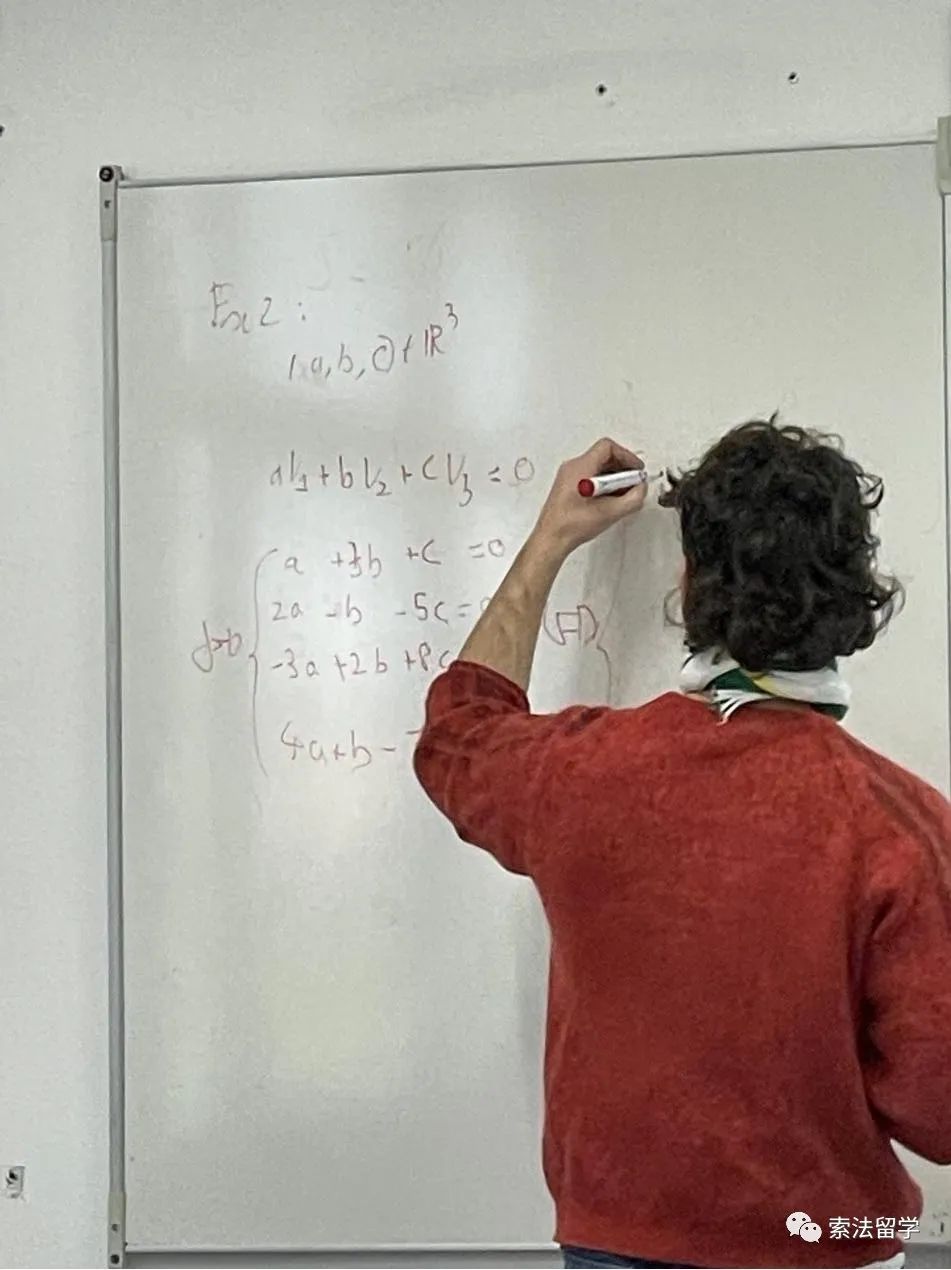 Ex 2 :
a, b, c) ∈ ℝ³
aV₁ + bV₂ + cV₃ = 0
a + 3b + c = 0
2a - b - 5c =
-3a + 2b + 8c
4a + b -
索法留学